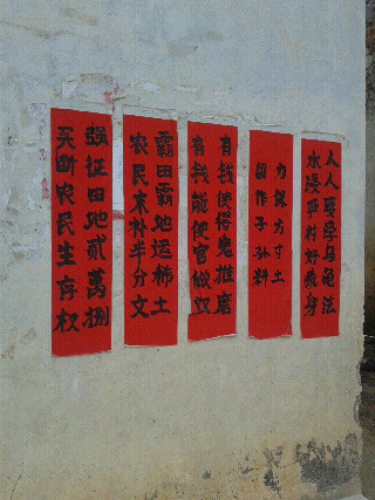 人人要学乌龟法
水浸平村好藏身
力保方寸土
留作子孙料
有钱使得鬼推磨
有钱能使官做奴
霸田霸地运稀土
农民未补半分文
强征田地贰萬捌
买断农民生存权